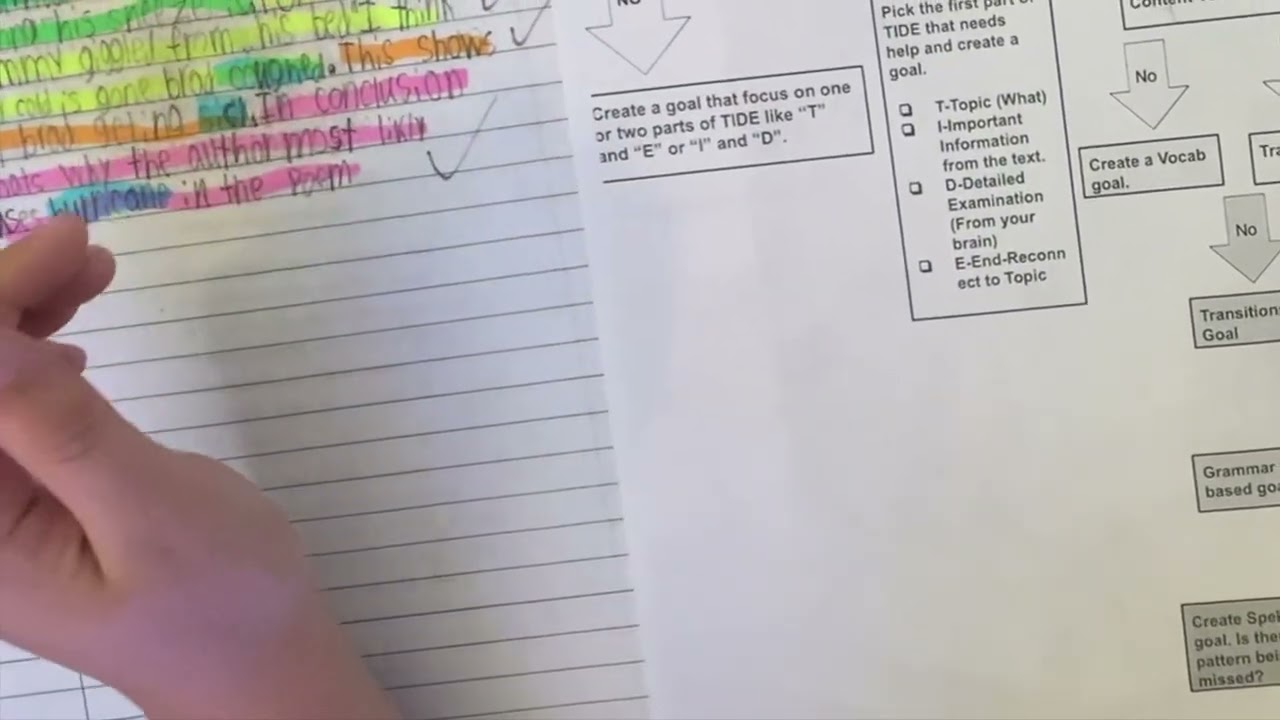 his sneeze
mmy giggled from his bed I think
cold is gone brad coughed. This shows
brad
In conclusion
hats why the author most likly
ses hurricane in the poem
NO
Create a goal that focus on one
or two parts of TIDE like “T”
and “E” or “I” and “D”.
Pick the first part
TIDE that needs
help and create a
goal.
T-Topic (What)
I-Important
Information
from the text.
D-Detailed
Examination
(From your
brain)
E-End-Reconn
ect to Topic
No
Create a Vocab
goal.
Tra
No
Transition
Goal
Grammar
based goa
Create Spel
goal. Is the
pattern bei
missed?